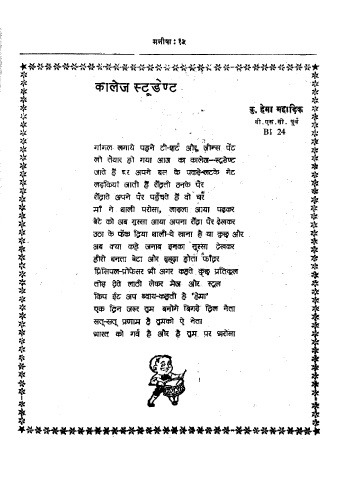 मनीषा : १५
कालेज स्टूडेण्ट
कु. हेमा महाडिक
बी. एस. सी. पूर्व
BI 24
गॉगल लगाये पहने टी-शर्ट और जीन्स पेंट
लो तैयार हो गया आज का कालेज-स्टूडेण्ट
जाते हैं घर अपने बस के पकड़े-लटके गेट
लड़कियां जाती हैं रौंदती उनके पैर
रौंदाते अपने पैर पहुँचते हैं वो घर
माँ ने थाली परोसा, लाड़ला आया पढ़कर
बेटे को अब गुस्सा आया अपना रौंदा पैर देखकर
उठा के फेंक दिया थाली-ये खाना है या कुछ और
अब क्या कहे जनाब इनका गुस्सा देखकर
हीरो बनता बेटा और बुड्ढा होता फॉदर
प्रिंसिपल-प्रोफेसर भी अगर कहते कुछ प्रतिकूल
तोड़ देते लाठी लेकर मेज और स्टूल
किप ईट अप ब्वाय-कहती है 'हेमा'
एक दिन जरूर तुम बनोगे बिगड़े दिल नेता
सत्-सत् प्रणाम है तुमको ऐ नेता
भारत को गर्व है और है तुम पर भरोसा